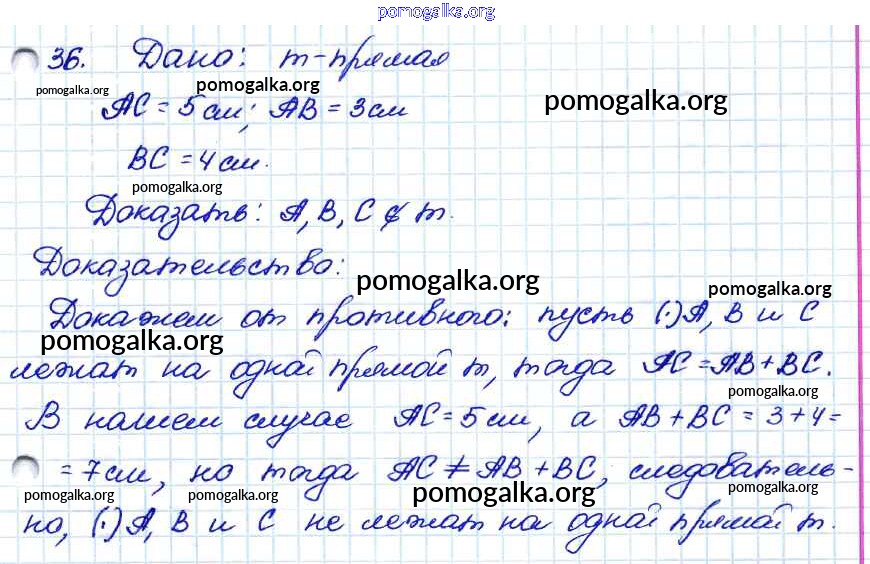 pomogalka.org
36. Дано: m-прямая
pomogalka.org
pomogalka.org
AC = 5 см; AB = 3 см
pomogalka.org
BC = 4 см.
pomogalka.org
Доказать: A, B, C ∉ m.
Доказательство:
pomogalka.org
pomogalka.org
Докажем от противного: пусть (·)A, B и C
pomogalka.org
лежат на одной прямой m, тогда AC = AB + BC.
pomogalka.org
В нашем случае AC = 5 см, а AB + BC = 3 + 4 =
= 7 см, но тогда AC ≠ AB + BC, следователь-
pomogalka.org
pomogalka.org
pomogalka.org
pomogalka.org
но, (·) A, B и C не лежат на одной прямой m.